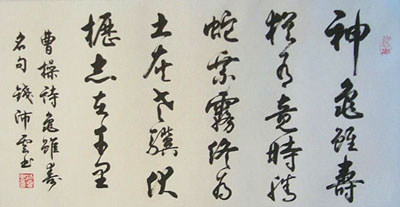 神龜雖壽
猶有竟時騰
蛇乘霧終為
土灰老驥伏
櫪志在千里
曹操詩龜雖壽
名句錢沛雲書